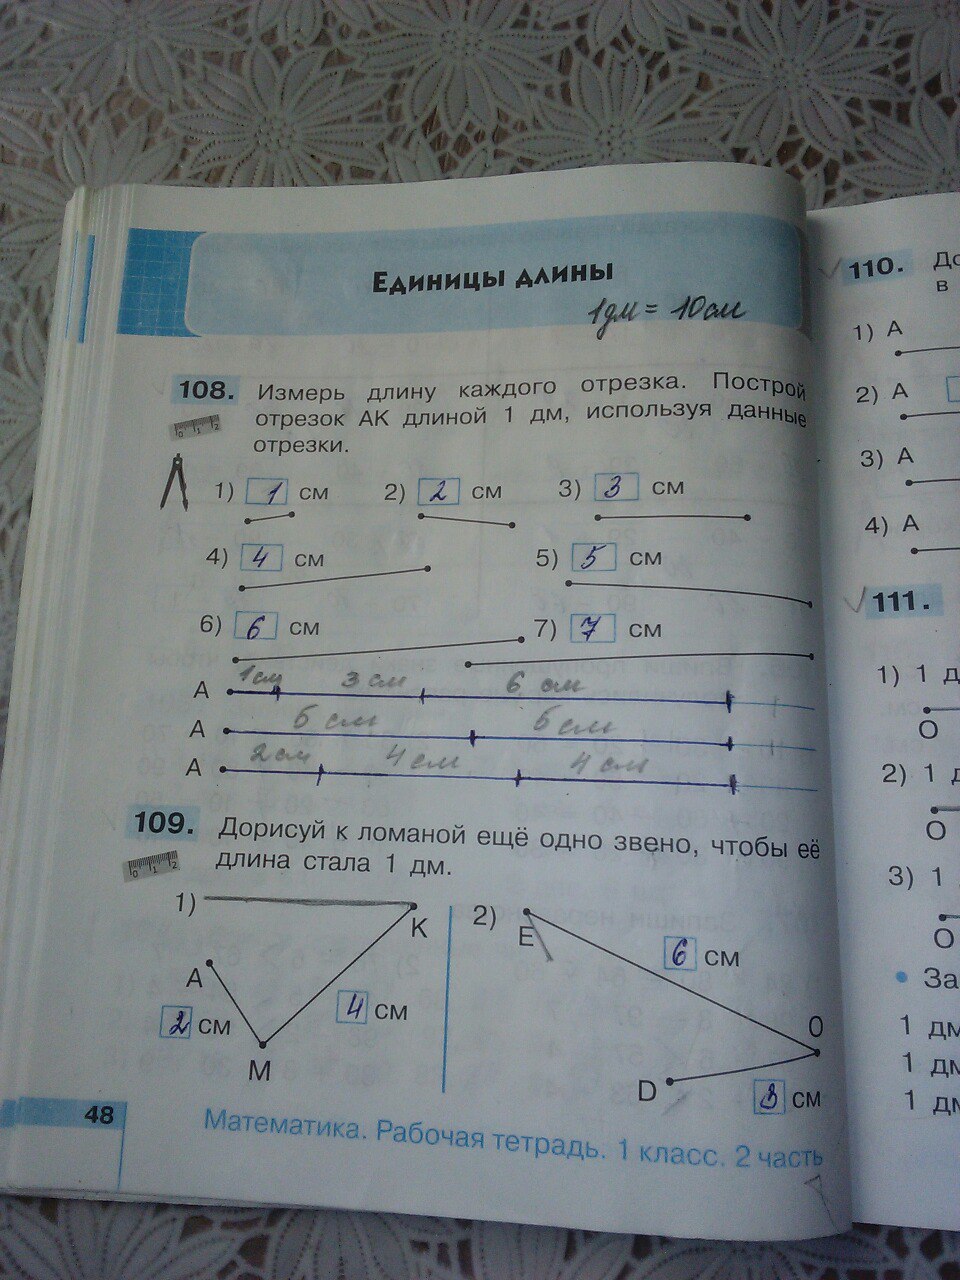 Единицы длины
1дм = 10см
108. Измерь длину каждого отрезка. Построй
отрезок АК длиной 1 дм, используя данные
отрезки.
0 1 2
1) 1 см 2) 2 см 3) 3 см
4) 4 см 5) 5 см
6) 6 см 7) 7 см
А 1см 3 см 6 см
А 5 см 5 см
А 2см 4 см 4 см
109. Дорисуй к ломаной ещё одно звено, чтобы её
длина стала 1 дм.
0 1 2
1) К 2) Е
6 см
А
2 см 4 см
О
М
D
3 см
48
Математика. Рабочая тетрадь. 1 класс. 2 часть
110.
в
1) А
2) А
3) А
4) А
111.
1) 1
О
2) 1
О
3) 1
О
• За
1 дм
1 дм
1 дм